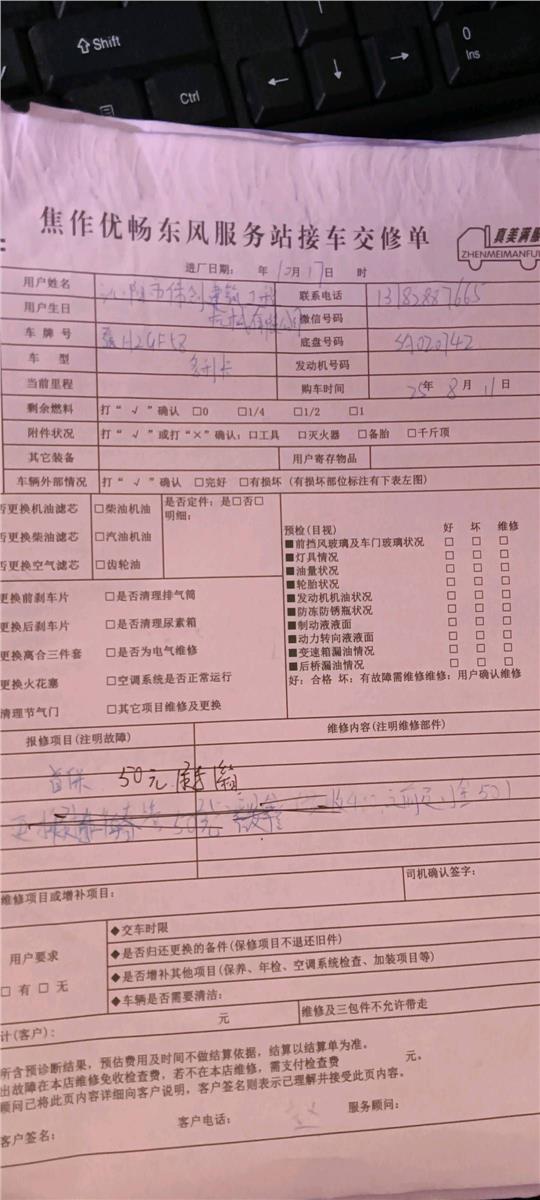 Shift
Ctrl
0
Ins
焦作优畅东风服务站接车交修单
真美满服
ZHENMEIMANFU
进厂日期： 年 10月17日 时
用户姓名 沁阳市 建筑工程 联系电话 13782887665
用户生日 机械有限公司 微信号码
车牌号 豫H2GF58 底盘号码 SA020742
车型 多利卡 发动机号码
当前里程 购车时间 25年8月11日
剩余燃料 打“√”确认 □0 □1/4 □1/2 □1
附件状况 打“√”或打“×”确认：□工具 □灭火器 □备胎 □千斤顶
其它装备 用户寄存物品
车辆外部情况 打“√”确认 □完好 □有损坏（有损坏部位标注有下表左图）
否更换机油滤芯 □柴油机油 是否定件：是□否□
明细：
否更换柴油滤芯 □汽油机油
否更换空气滤芯 □齿轮油
更换前刹车片 □是否清理排气筒
更换后刹车片 □是否清理尿素箱
更换离合三件套 □是否为电气维修
更换火花塞 □空调系统是否正常运行
清理节气门 □其它项目维修及更换
预检(目视) 好 坏 维修
■前挡风玻璃及车门玻璃状况 □ □ □
■灯具情况 □ □ □
■油量状况 □ □ □
■轮胎状况 □ □ □
■发动机机油状况 □ □ □
■防冻防锈瓶状况 □ □ □
■制动液液面 □ □ □
■动力转向液液面 □ □ □
■变速箱漏油情况 □ □ □
■后桥漏油情况 □ □ □
好：合格 坏：有故障需维修维修：用户确认维修
报修项目(注明故障) 维修内容(注明维修部件)
首保 50元
50元
维修项目或增补项目： 司机确认签字：
用户要求
□有 □无
◆交车时限
◆是否归还更换的备件(保修项目不退还旧件)
◆是否增补其他项目(保养、年检、空调系统检查、加装项目等)
◆车辆是否需要清洁：
计(客户)： 元 维修及三包件不允许带走
所含预诊断结果，预估费用及时间不做结算依据，结算以结算单为准。
出故障在本店维修免收检查费，若不在本店维修，需支付检查费 元。
顾问已将此页内容详细向客户说明，客户签名则表示已理解并接受此页内容。
客户签名： 客户电话： 服务顾问：